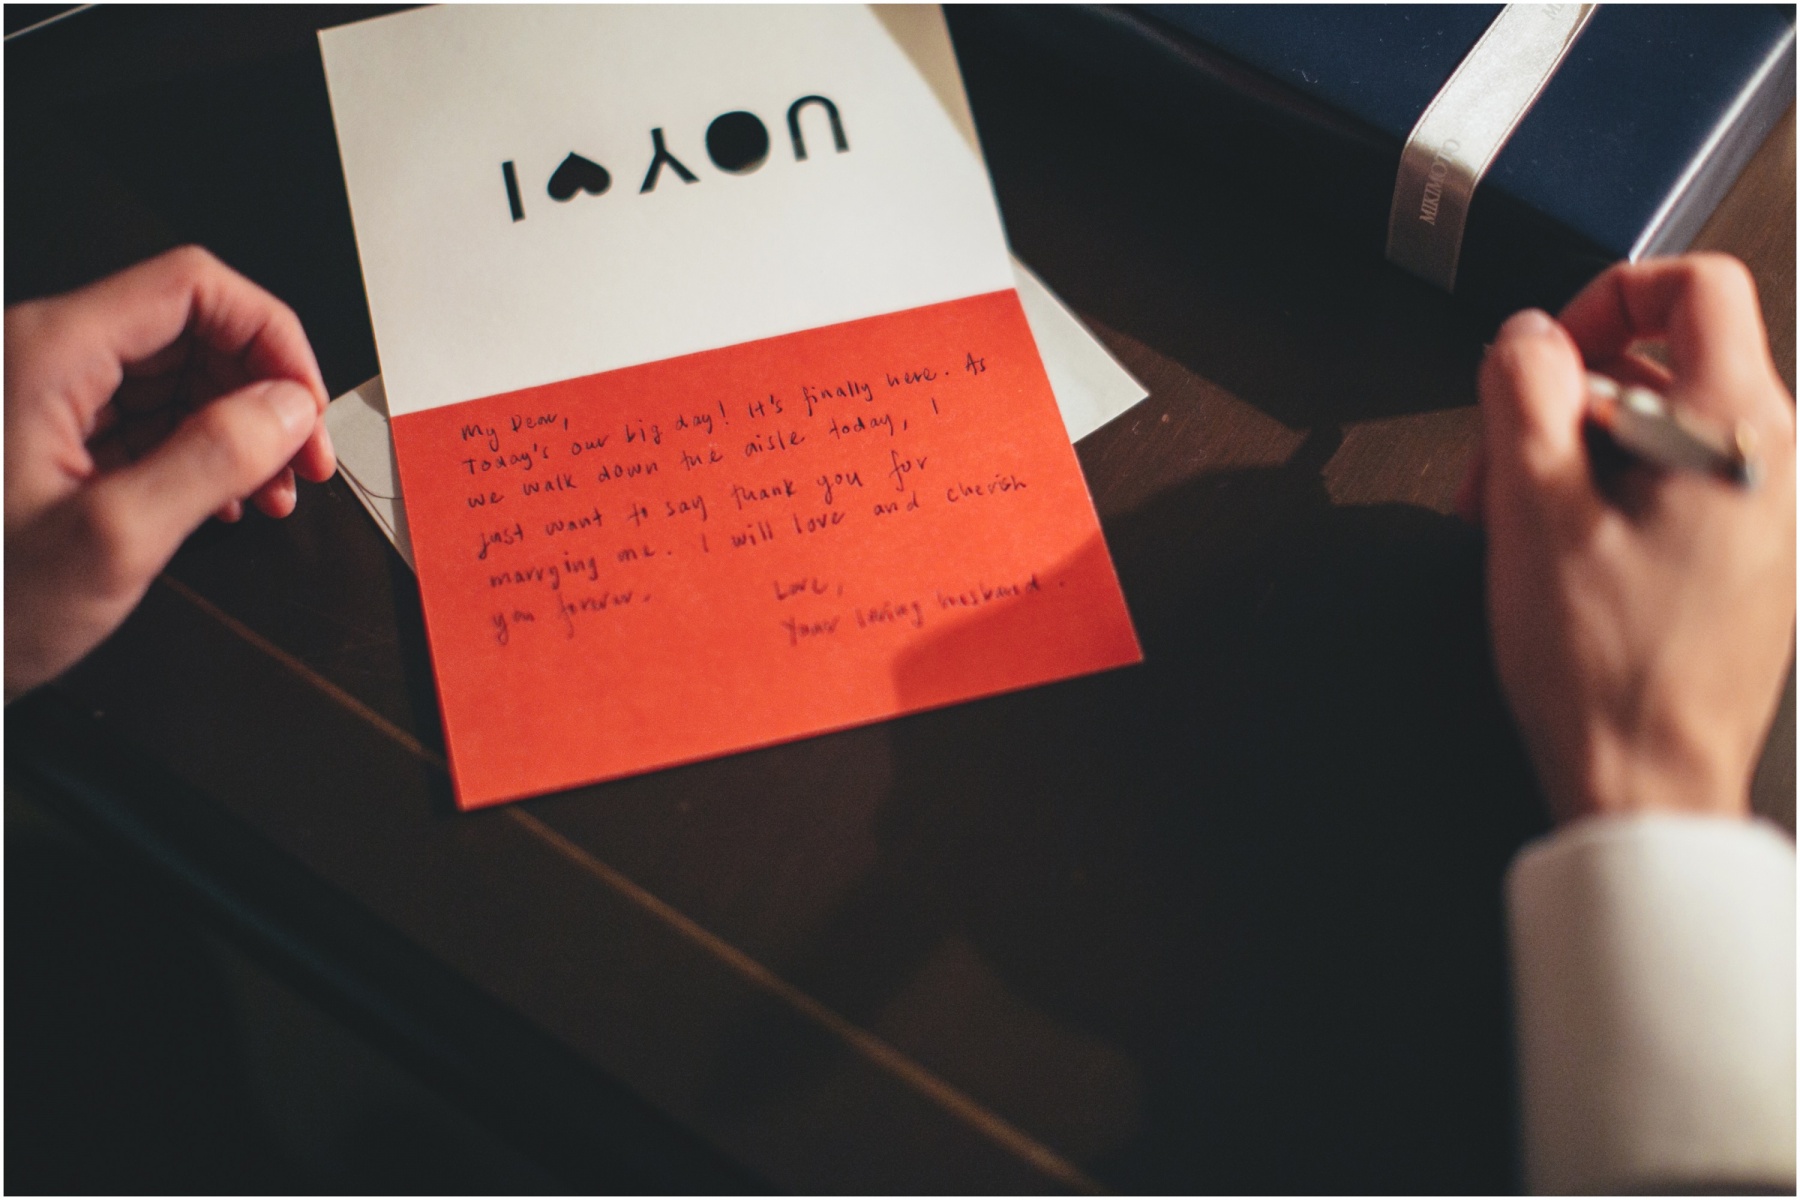 I ♥ YOU
My Dear,
Today's our big day! It's finally here. As
we walk down the aisle today, I
just want to say thank you for
marrying me. I will love and cherish
you forever.
Love,
Your loving husband.
MIKIMOTO